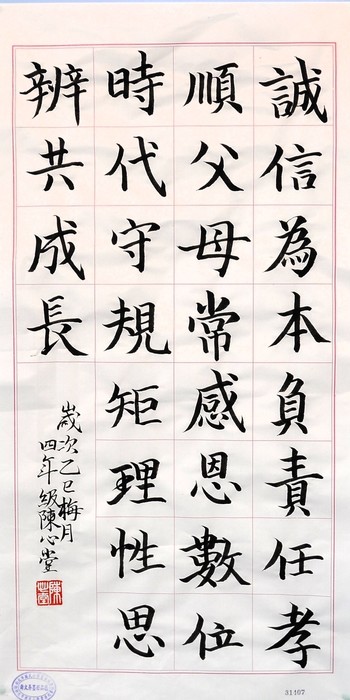 誠信為本負責任孝
順父母常感恩數位
時代守規矩理性思
辨共成長
歲次乙巳梅月
四年級陳心堂
31407